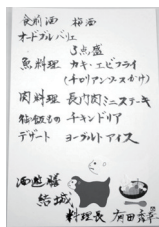 食前酒　梅酒
オードブルバリエ
5点盛
魚料理　カキ・エビフライ
(チロリアンソースかけ)
肉料理　長門肉ミニステーキ
チキンドリア
デザート　ヨーグルトアイス
酒遊膳
結城
料理長　有田彦幸